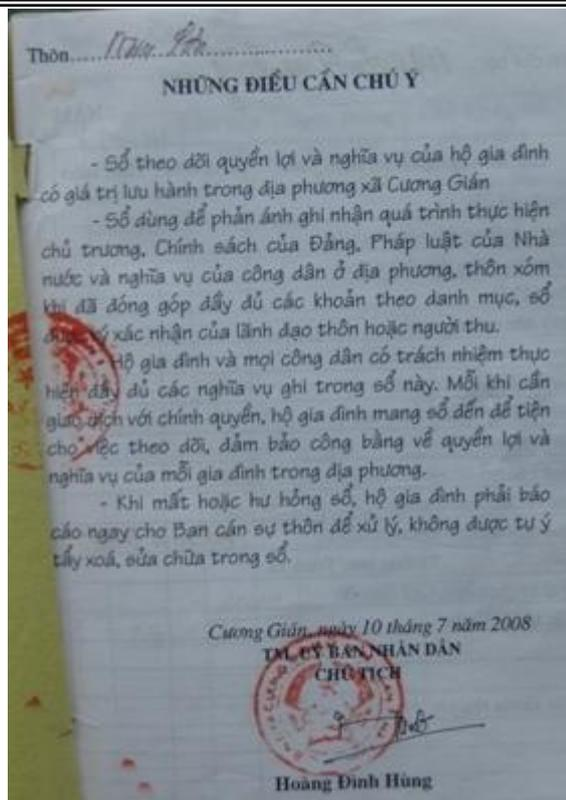 Thôn
NHỮNG ĐIỀU CẦN CHÚ Ý
- Sổ theo dõi quyền lợi và nghĩa vụ của hộ gia đình
có giá trị lưu hành trong địa phương xã Cương Gián
- Sổ dùng để phản ánh ghi nhận quá trình thực hiện
chủ trương, Chính sách của Đảng, Pháp luật của Nhà
nước và nghĩa vụ của công dân ở địa phương, thôn xóm
khi đã đóng góp đầy đủ các khoản theo danh mục, sổ
được ký xác nhận của lãnh đạo thôn hoặc người thu.
Hộ gia đình và mọi công dân có trách nhiệm thực
hiện đầy đủ các nghĩa vụ ghi trong sổ này. Mỗi khi cần
giao dịch với chính quyền, hộ gia đình mang sổ đến để tiện
cho việc theo dõi, đảm bảo công bằng về quyền lợi và
nghĩa vụ của mỗi gia đình trong địa phương.
- Khi mất hoặc hư hỏng sổ, hộ gia đình phải báo
cáo ngay cho Ban cán sự thôn để xử lý, không được tự ý
tẩy xoá, sửa chữa trong sổ.
Cương Gián, ngày 10 tháng 7 năm 2008
TM. UỶ BAN NHÂN DÂN
CHỦ TỊCH
Hoàng Đình Hùng